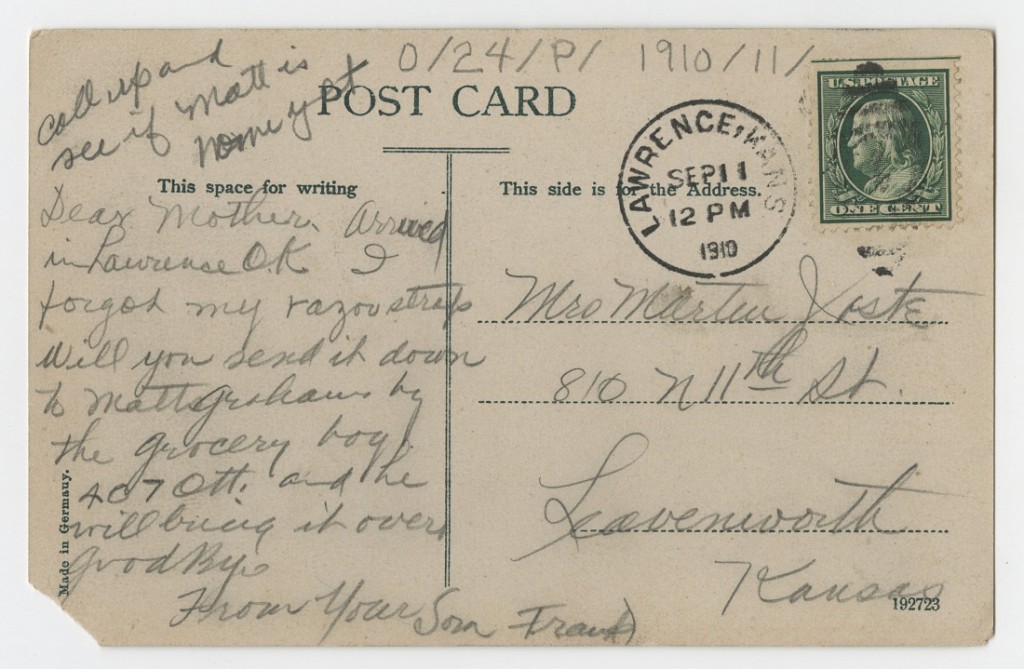 0/24/P/ 1910/11/
call up and
see if Matt is
home yet
POST CARD
U.S. POSTAGE
ONE CENT
LAWRENCE, KANS
SEP 11
12 PM
1910
This space for writing
This side is for the Address.
Dear Mother. Arrived
in Lawrence O.K I
forgot my razor strap
Will you send it down
to Matt Grahams by
the grocery boy.
407 Ott. and he
will bring it over
Good Bye
From Your Son Frank
Mrs Martin Joste
810 N 11th St.
Leavenworth
Kansas
Made in Germany.
192723